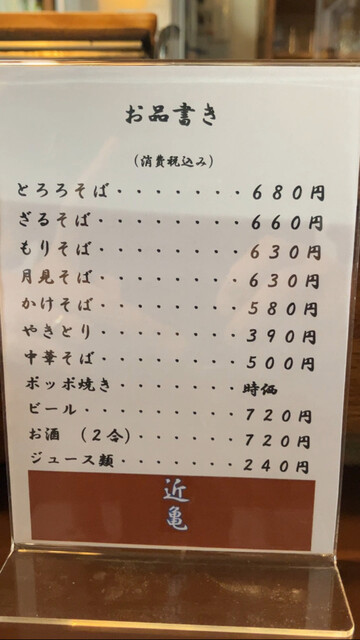 お品書き
(消費税込み)
とろろそば・・・・・・・680円
ざるそば・・・・・・・・660円
もりそば・・・・・・・・630円
月見そば・・・・・・・・630円
かけそば・・・・・・・・580円
やきとり・・・・・・・・390円
中華そば・・・・・・・・500円
ポッポ焼き・・・・・・・時価
ビール・・・・・・・・・720円
お酒 (2合)・・・・・・・720円
ジュース類・・・・・・・240円
近亀